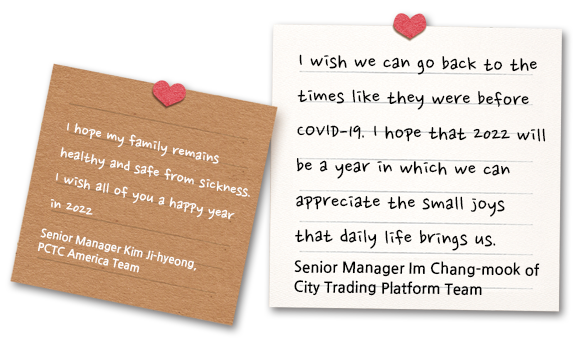 I hope my family remains
healthy and safe from sickness.
I wish all of you a happy year
in 2022
Senior Manager Kim Ji-hyeong,
PCTC America Team
I wish we can go back to the
times like they were before
COVID-19. I hope that 2022 will
be a year in which we can
appreciate the small joys
that daily life brings us.
Senior Manager Im Chang-mook of
City Trading Platform Team